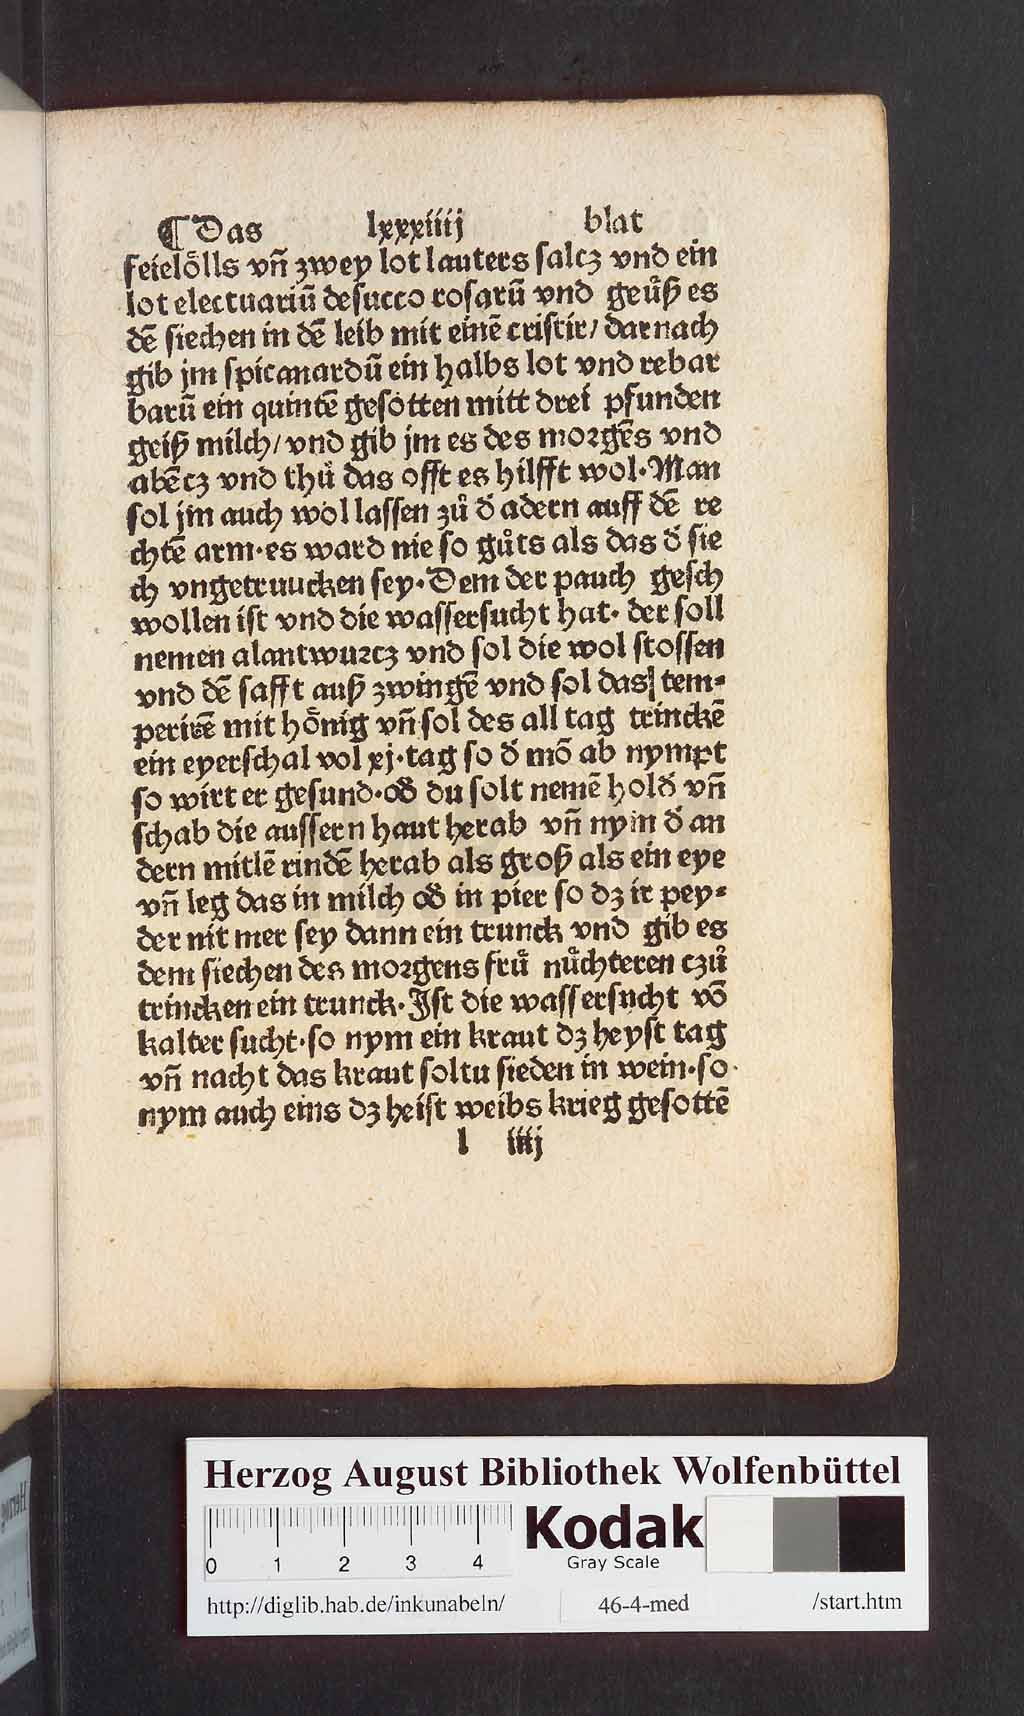 ¶ Das lxxxiiij blat
feielöͤlls vñ zwey lot lauters salcz vnd ein
lot electuariū desucco rosarū vnd geuͤß es
dē siechen in dē leib mit einē cristir/ darnach
gib jm spicanardū ein halbs lot vnd rebar
barū ein quintē gesotten mitt drei pfunden
geiß milch/ vnd gib jm es des morgēs vnd
abēcz vnd thuͤ das offt es hilfft wol· Man
sol jm auch wol lassen zuͦ d̕ adern auff dē re
chtē arm· es ward nie so guͦts als das d̕ sie
ch vngetruucken sey· Dem der pauch gesch
wollen ist vnd die wassersucht hat· der soll
nemen alantwurcz vnd sol die wol stossen
vnd dē safft auß zwingē vnd sol das tem⸗
perirē mit hoͤnig vñ sol des all tag trinckē
ein eyerschal vol xj· tag so d̕ mō ab nympt
so wirt er gesund· od̕ du solt nemē hold̕ vñ
schab die aussern haut herab vñ nym d̕ an
dern mitlē rindē herab als groß als ein eye
vñ leg das in milch od̕ in pier so dz ir pey⸗
der nit mer sey dann ein trunck vnd gib es
dem siechen des morgens fruͤ nuͤchteren czuͦ
trincken ein trunck· Ist die wassersucht vō
kalter sucht· so nym ein kraut dz heyst tag
vñ nacht das kraut soltu sieden in wein· so
nym auch eins dz heist weibs krieg gesottē
l iiij
Herzog August Bibliothek Wolfenbüttel
0 1 2 3 4
Kodak
Gray Scale
http://diglib.hab.de/inkunabeln/ 46-4-med /start.htm